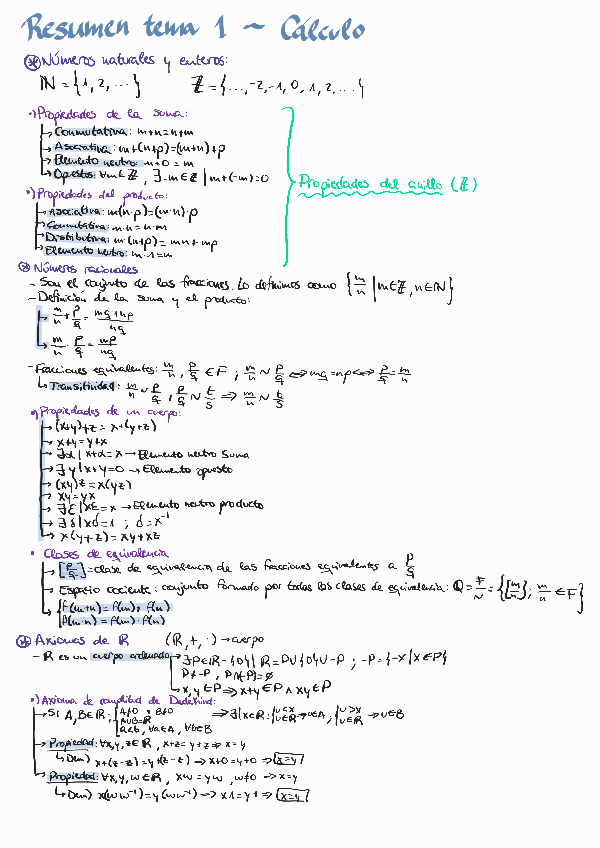 Resumen tema 1 ~ Cálculo
Números naturales y enteros:
ℕ = {1, 2, ...} ℤ = {..., -2, -1, 0, 1, 2, ...}
•) Propiedades de la suma:
Conmutativa: m+n=n+m
Asociativa: m+(n+p)=(m+n)+p
Elemento neutro: m+0=m
Opuesto: ∀m∈ℤ, ∃-m∈ℤ | m+(-m)=0
Propiedades del anillo (ℤ)
•) Propiedades del producto:
Asociativa: m(n·p)=(m·n)·p
Conmutativa: m·n=n·m
Distributiva: m·(n+p)=mn+mp
Elemento neutro: m·1=m
Números racionales
- Son el conjunto de las fracciones. Lo definimos como {m/n | m∈ℤ, n∈ℕ}
- Definición de la suma y el producto:
m/n + p/q = mq+np/nq
m/n · p/q = mp/nq
- Fracciones equivalentes: m/n, p/q ∈ F; m/n ~ p/q ⇔ mq=np ⇔ p/q = m/n
Transitividad: m/n ~ p/q, p/q ~ t/s ⇒ m/n ~ t/s
Propiedades de un cuerpo:
(x+y)+z = x+(y+z)
x+y=y+x
∃α | x+α=x → Elemento neutro suma
∃y | x+y=0 → Elemento opuesto
(xy)z=x(yz)
xy=yx
∃ξ | xξ=x → Elemento neutro producto
∃δ | xδ=1 ; δ=x⁻¹
x(y+z)=xy+xz
• Clases de equivalencia
[p/q] = clase de equivalencia de las fracciones equivalentes a p/q
Espacio cociente: conjunto formado por todas las clases de equivalencia: ℚ = F/~ = {[m/n]; m/n ∈ F}
f(m+n) = f(m)+f(n)
f(m·n) = f(m)·f(n)
Axiomas de ℝ (ℝ,+,·) → cuerpo
- ℝ es un cuerpo ordenado
∃P∈ℝ-{0} | ℝ=P∪{0}∪-P ; -P={-x | x∈P}
P≠-P, P∩(-P)=∅
x,y∈P ⇒ x+y∈P ∧ xy∈P
•) Axioma de completitud de Dedekind:
Si A,B∈ℝ: A≠∅, B≠∅
A∪B=ℝ
a<b, ∀a∈A, ∀b∈B
⇒ ∃!x∈ℝ: u<x, u∈ℝ → u∈A, u>x, u∈ℝ → u∈B
Propiedad: ∀x,y,z∈ℝ, x+z=y+z ⇒ x=y
Dem) x+(z-z)=y+(z-z) ⇒ x+0=y+0 ⇒ x=y
Propiedad: ∀x,y,w∈ℝ, xw=yw, w≠0 → x=y
Dem) x(ww⁻¹)=y(ww⁻¹) ⇒ x1=y1 ⇒ x=y